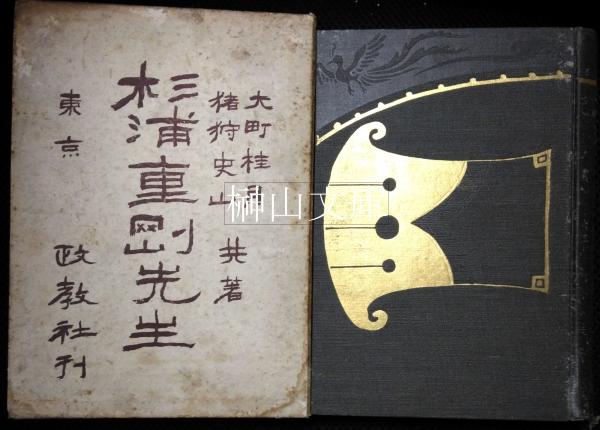 大町桂月
猪狩史山
共著
杉浦重剛先生
東京
政教社刊
榊山文庫